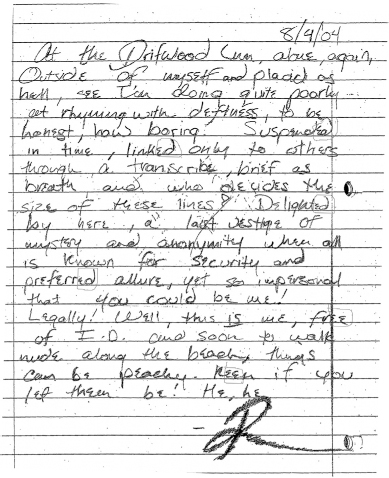 8/9/04
At the Drifwood Inn, alone again,
Outside of myself and placid as
hell, see I'm doing quite poorly
at rhyming with deftness, to be
honest, how boring! Suspended
in time, linked only to others
through a transcribe, brief as
breath, and who decides the
size of these lines? Delighted
by here, a last vestige of
mystery and anonymity when all
is known for security and
preferred allure, yet so impersonal
that you could be me!
Legally! Well, this is me, free
of I.D. and soon to walk
nude along the beach, things
can be peachy. Keen if you
let them be! He, he